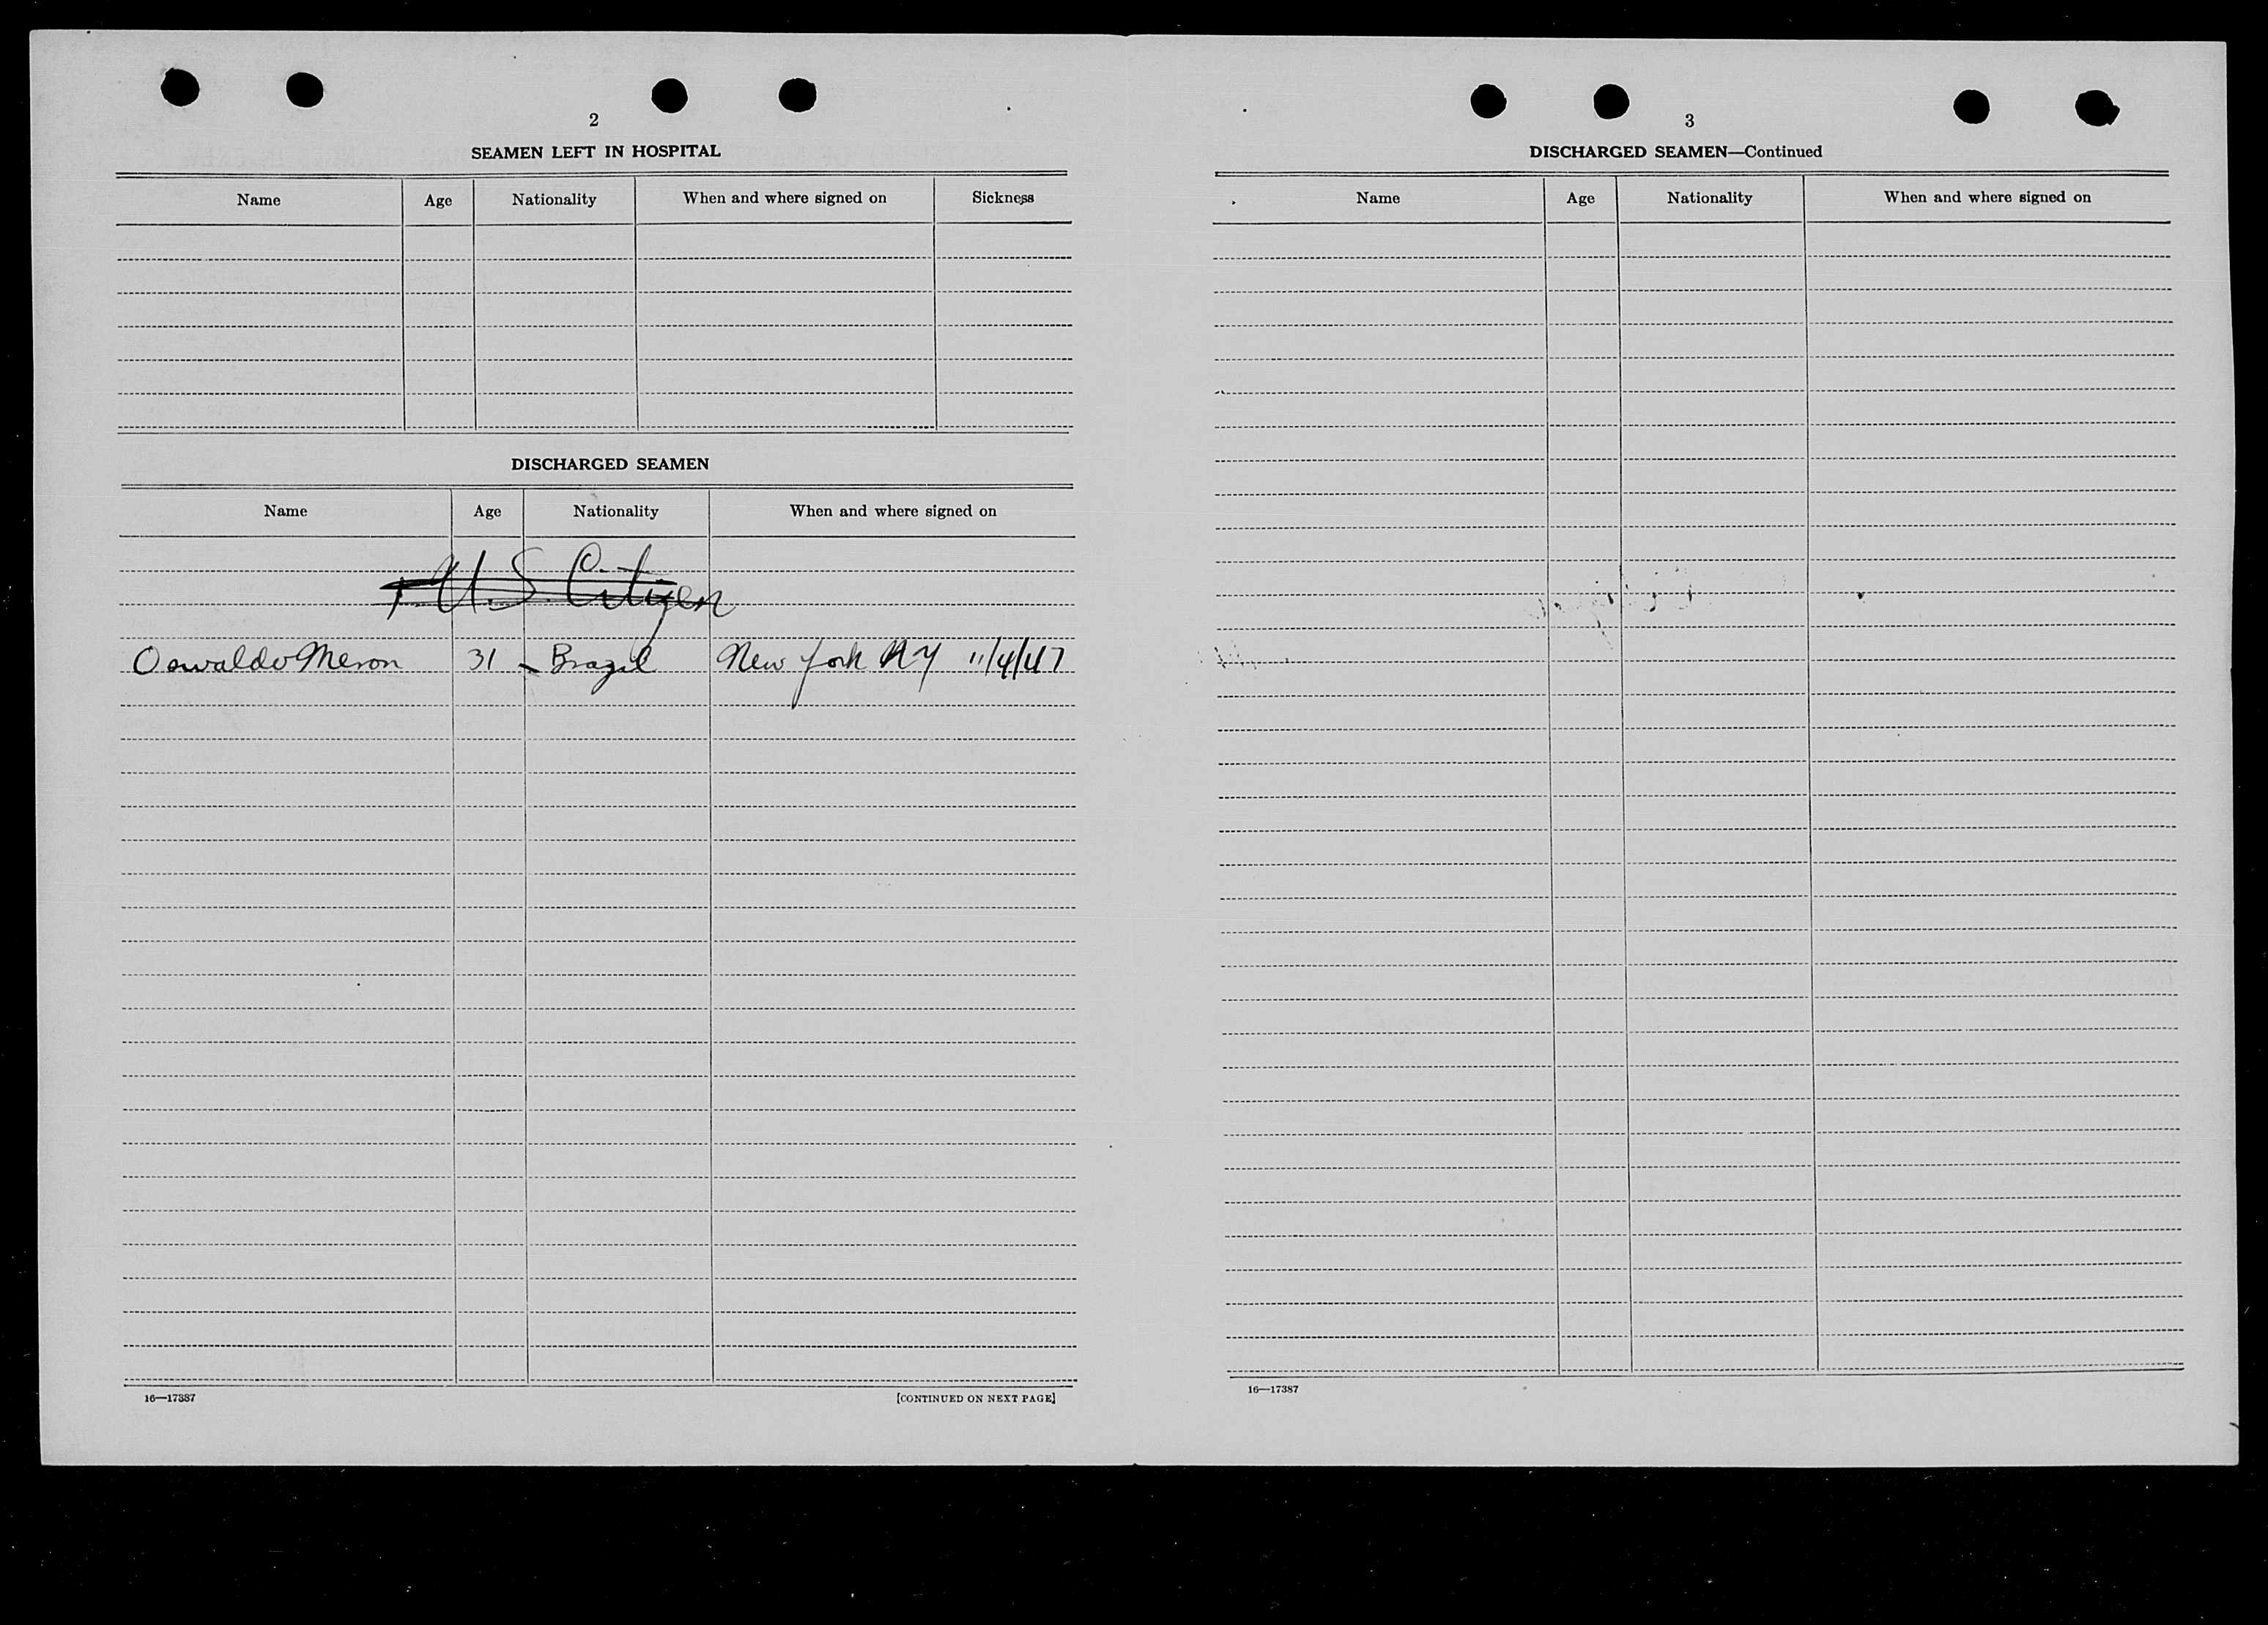 2
SEAMEN LEFT IN HOSPITAL
Name Age Nationality When and where signed on Sickness
DISCHARGED SEAMEN
Name Age Nationality When and where signed on
U.S. Citizen
Oswaldo Meron 31 Brazil New York NY 11/4/47
16—17387 [CONTINUED ON NEXT PAGE]
3
DISCHARGED SEAMEN—Continued
Name Age Nationality When and where signed on
16—17387